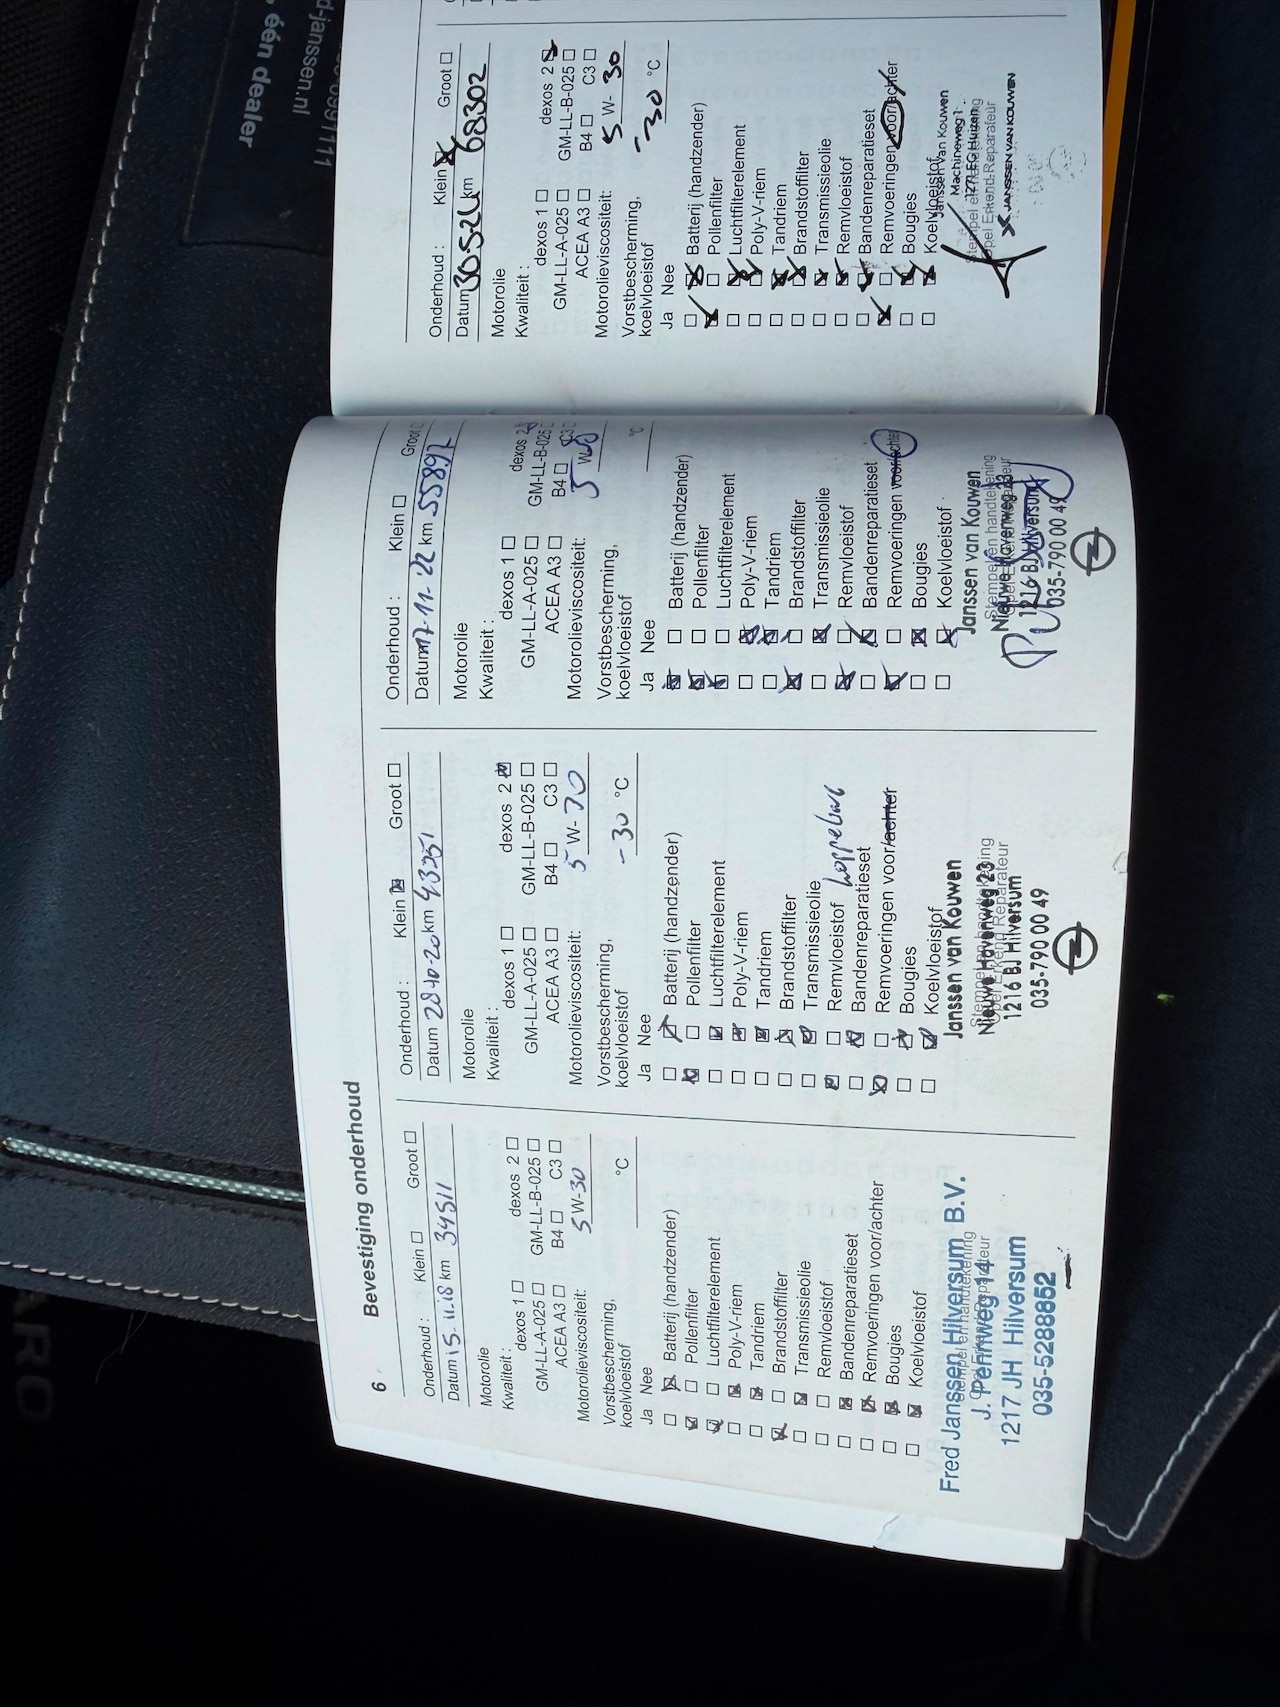 één dealer
d-janssen.nl
6 Bevestiging onderhoud
Onderhoud : Klein Groot
Datum 15.11.18 km 34511
Motorolie
Kwaliteit : dexos 1 dexos 2
GM-LL-A-025 GM-LL-B-025
ACEA A3 B4 C3
Motorolieviscositeit: 5 W-30
Vorstbescherming,
koelvloeistof °C
Ja Nee
Batterij (handzender)
Pollenfilter
Luchtfilterelement
Poly-V-riem
Tandriem
Brandstoffilter
Transmissieolie
Remvloeistof
Bandenreparatieset
Remvoeringen voor/achter
Bougies
Koelvloeistof
Fred Janssen Hilversum B.V.
Stempel en handtekening
J. Pennweg 14
1217 JH Hilversum
035-5288852
Onderhoud : Klein Groot
Datum 28-10-20 km 43351
Motorolie
Kwaliteit : dexos 1 dexos 2
GM-LL-A-025 GM-LL-B-025
ACEA A3 B4 C3
Motorolieviscositeit: 5 W-
Vorstbescherming,
koelvloeistof -30 °C
Ja Nee
Batterij (handzender)
Pollenfilter
Luchtfilterelement
Poly-V-riem
Tandriem
Brandstoffilter
Transmissieolie
Remvloeistof
Bandenreparatieset
Remvoeringen voor/achter
Bougies
Koelvloeistof
Janssen van Kouwen
Stempel en handtekening
Nieuwe Havenweg 23
Opel Erkend Reparateur
1216 BJ Hilversum
035-790 00 49
Onderhoud : Klein Groot
Datum 17-11-22 km 55897
Motorolie
Kwaliteit : dexos 1 dexos 2
GM-LL-A-025 GM-LL-B-025
ACEA A3 B4 C3
Motorolieviscositeit: 5 W
Vorstbescherming,
koelvloeistof °C
Ja Nee
Batterij (handzender)
Pollenfilter
Luchtfilterelement
Poly-V-riem
Tandriem
Brandstoffilter
Transmissieolie
Remvloeistof
Bandenreparatieset
Remvoeringen voor/achter
Bougies
Koelvloeistof
Janssen van Kouwen
Stempel en handtekening
Nieuwe Havenweg 23
1216 BJ Hilversum
035-790 00 49
Onderhoud : Klein Groot
Datum 30-5-24 km 68302
Motorolie
Kwaliteit : dexos 1 dexos 2
GM-LL-A-025 GM-LL-B-025
ACEA A3 B4 C3
Motorolieviscositeit: 5 W- 30
Vorstbescherming,
koelvloeistof -30 °C
Ja Nee
Batterij (handzender)
Pollenfilter
Luchtfilterelement
Poly-V-riem
Tandriem
Brandstoffilter
Transmissieolie
Remvloeistof
Bandenreparatieset
Remvoeringen voor/achter
Bougies
Koelvloeistof
Janssen van Kouwen
Machineweg 1
1271 EG Huizen
Opel Erkend Reparateur
JANSSEN VAN KOUWEN